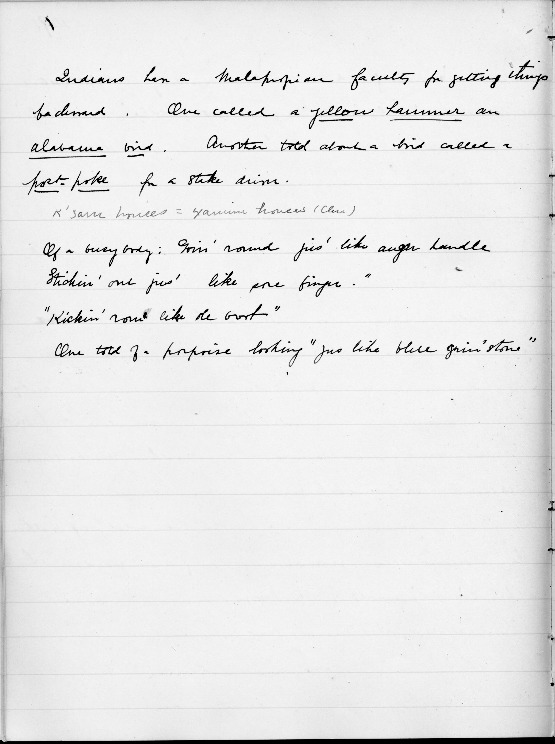 Indians have a Malapropian faculty for getting things
backward. One called a yellow hammer an
alabama bird. Another told about a bird called a
post-poke for a stake driver.
K'sam houses = (Clen)
Of a busybody: Goin' round jus' like auger handle
Stickin' out jus' like sore finger."
"Kickin' roun' like ole boot"
One told of a porpoise looking "jus like blue grin'stone"